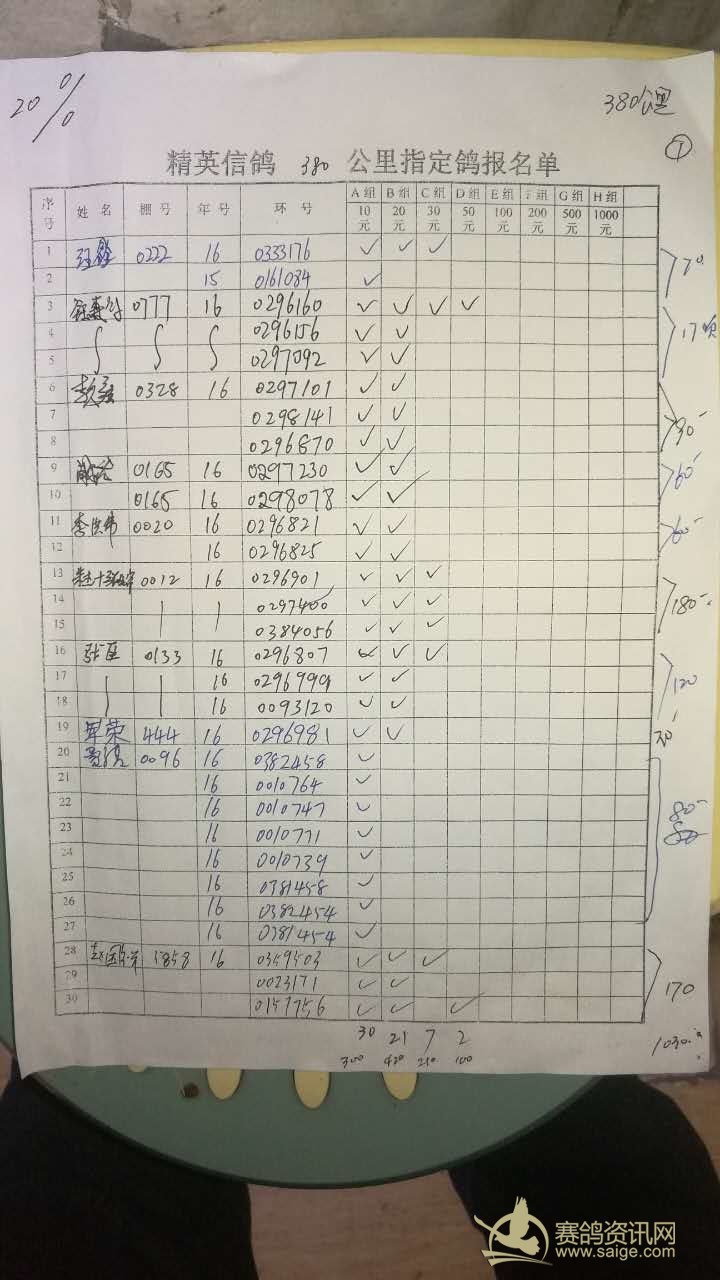 20%
380公里
①
精英信鸽 380 公里指定鸽报名单
序号 姓名 棚号 年号 环号 A组10元 B组20元 C组30元 D组50元 E组100元 F组200元 G组500元 H组1000元
1 0222 16 0333176 ✓ ✓ ✓
2 15 0161084 ✓ 70
3 0777 16 0296160 ✓ ✓ ✓ ✓
4 0296156 ✓ ✓ 170
5 0297092 ✓ ✓
6 0328 16 0297101 ✓ ✓
7 0298141 ✓ ✓ 90
8 0296870 ✓ ✓
9 0165 16 0297230 ✓ ✓ 60
10 0165 16 0298078 ✓ ✓
11 0020 16 0296821 ✓ ✓ 60
12 16 0296825 ✓ ✓
13 0012 16 0296901 ✓ ✓ ✓
14 0297400 ✓ ✓ ✓ 180
15 0384056 ✓ ✓ ✓
16 张臣 0133 16 0296807 ✓ ✓ ✓
17 16 0296999 ✓ ✓ 120
18 16 0093120 ✓ ✓
19 军荣 444 16 0296981 ✓ ✓ 30
20 0096 16 0382458 ✓
21 16 0010764 ✓
22 16 0010747 ✓ 80
23 16 0010771 ✓
24 16 0010739 ✓
25 16 0381458 ✓
26 16 0382454 ✓
27 16 0381454 ✓
28 1858 16 0359503 ✓ ✓ ✓
29 0023171 ✓ ✓ 170
30 0157756 ✓ ✓ ✓
30 21 7 2 1030
300 420 210 100
赛鸽资讯网
www.saige.com